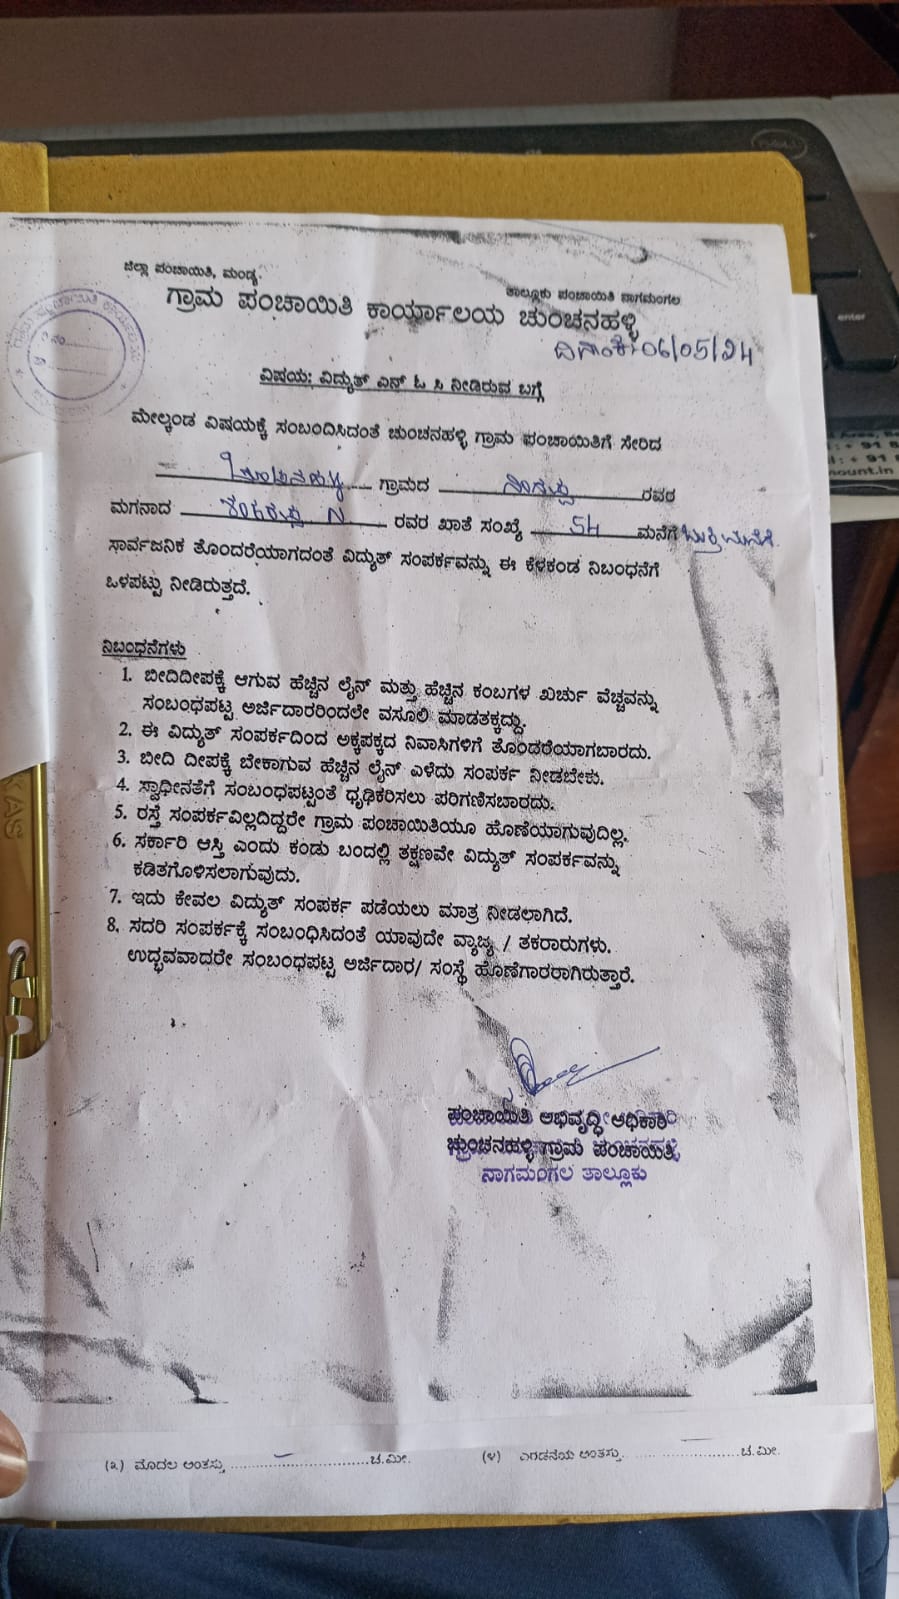 ಜಿಲ್ಲಾ ಪಂಚಾಯಿತಿ, ಮಂಡ್ಯ.
ತಾಲ್ಲೂಕು ಪಂಚಾಯಿತಿ ನಾಗಮಂಗಲ
ಗ್ರಾಮ ಪಂಚಾಯಿತಿ ಕಾರ್ಯಾಲಯ ಚುಂಚನಹಳ್ಳಿ
ದಿನಾಂಕ:06/05/24
ವಿಷಯ: ವಿದ್ಯುತ್ ಎನ್ ಓ ಸಿ ನೀಡಿರುವ ಬಗ್ಗೆ
ಮೇಲ್ಕಂಡ ವಿಷಯಕ್ಕೆ ಸಂಬಂದಿಸಿದಂತೆ ಚುಂಚನಹಳ್ಳಿ ಗ್ರಾಮ ಪಂಚಾಯಿತಿಗೆ ಸೇರಿದ
ಗ್ರಾಮದ ರವರ
ಮಗನಾದ N ರವರ ಖಾತೆ ಸಂಖ್ಯೆ 54 ಮನೆಗೆ
ಸಾರ್ವಜನಿಕ ತೊಂದರೆಯಾಗದಂತೆ ವಿದ್ಯುತ್ ಸಂಪರ್ಕವನ್ನು ಈ ಕೆಳಕಂಡ ನಿಬಂಧನೆಗೆ
ಒಳಪಟ್ಟು ನೀಡಿರುತ್ತದೆ.
ನಿಬಂಧನೆಗಳು
1. ಬೀದಿದೀಪಕ್ಕೆ ಆಗುವ ಹೆಚ್ಚಿನ ಲೈನ್ ಮತ್ತು ಹೆಚ್ಚಿನ ಕಂಬಗಳ ಖರ್ಚು ವೆಚ್ಚವನ್ನು
ಸಂಬಂಧಪಟ್ಟ ಅರ್ಜಿದಾರರಿಂದಲೇ ವಸೂಲಿ ಮಾಡತಕ್ಕದ್ದು.
2. ಈ ವಿದ್ಯುತ್ ಸಂಪರ್ಕದಿಂದ ಅಕ್ಕಪಕ್ಕದ ನಿವಾಸಿಗಳಿಗೆ ತೊಂದರೆಯಾಗಬಾರದು.
3. ಬೀದಿ ದೀಪಕ್ಕೆ ಬೇಕಾಗುವ ಹೆಚ್ಚಿನ ಲೈನ್ ಎಳೆದು ಸಂಪರ್ಕ ನೀಡಬೇಕು.
4. ಸ್ವಾಧೀನತೆಗೆ ಸಂಬಂಧಪಟ್ಟಂತೆ ಧೃಢಿಕರಿಸಲು ಪರಿಗಣಿಸಬಾರದು.
5. ರಸ್ತೆ ಸಂಪರ್ಕವಿಲ್ಲದಿದ್ದರೇ ಗ್ರಾಮ ಪಂಚಾಯಿತಿಯೂ ಹೊಣೆಯಾಗುವುದಿಲ್ಲ.
6. ಸರ್ಕಾರಿ ಆಸ್ತಿ ಎಂದು ಕಂಡು ಬಂದಲ್ಲಿ ತಕ್ಷಣವೇ ವಿದ್ಯುತ್ ಸಂಪರ್ಕವನ್ನು
ಕಡಿತಗೊಳಿಸಲಾಗುವುದು.
7. ಇದು ಕೇವಲ ವಿದ್ಯುತ್ ಸಂಪರ್ಕ ಪಡೆಯಲು ಮಾತ್ರ ನೀಡಲಾಗಿದೆ.
8. ಸದರಿ ಸಂಪರ್ಕಕ್ಕೆ ಸಂಬಂಧಿಸಿದಂತೆ ಯಾವುದೇ ವ್ಯಾಜ್ಯ / ತಕರಾರುಗಳು.
ಉದ್ಭವವಾದರೇ ಸಂಬಂಧಪಟ್ಟ ಅರ್ಜಿದಾರ/ ಸಂಸ್ಥೆ ಹೊಣೆಗಾರರಾಗಿರುತ್ತಾರೆ.
ಪಂಚಾಯಿತಿ ಅಭಿವೃದ್ಧಿ ಅಧಿಕಾರಿ
ಚುಂಚನಹಳ್ಳಿ ಗ್ರಾಮ ಪಂಚಾಯಿತಿ
ನಾಗಮಂಗಲ ತಾಲ್ಲೂಕು
(೩) ಮೊದಲ ಅಂತಸ್ತು ..............................ಚ.ಮೀ. (೪) ಎರಡನೆಯ ಅಂತಸ್ತು. ......................ಚ.ಮೀ.
enter
mount.in